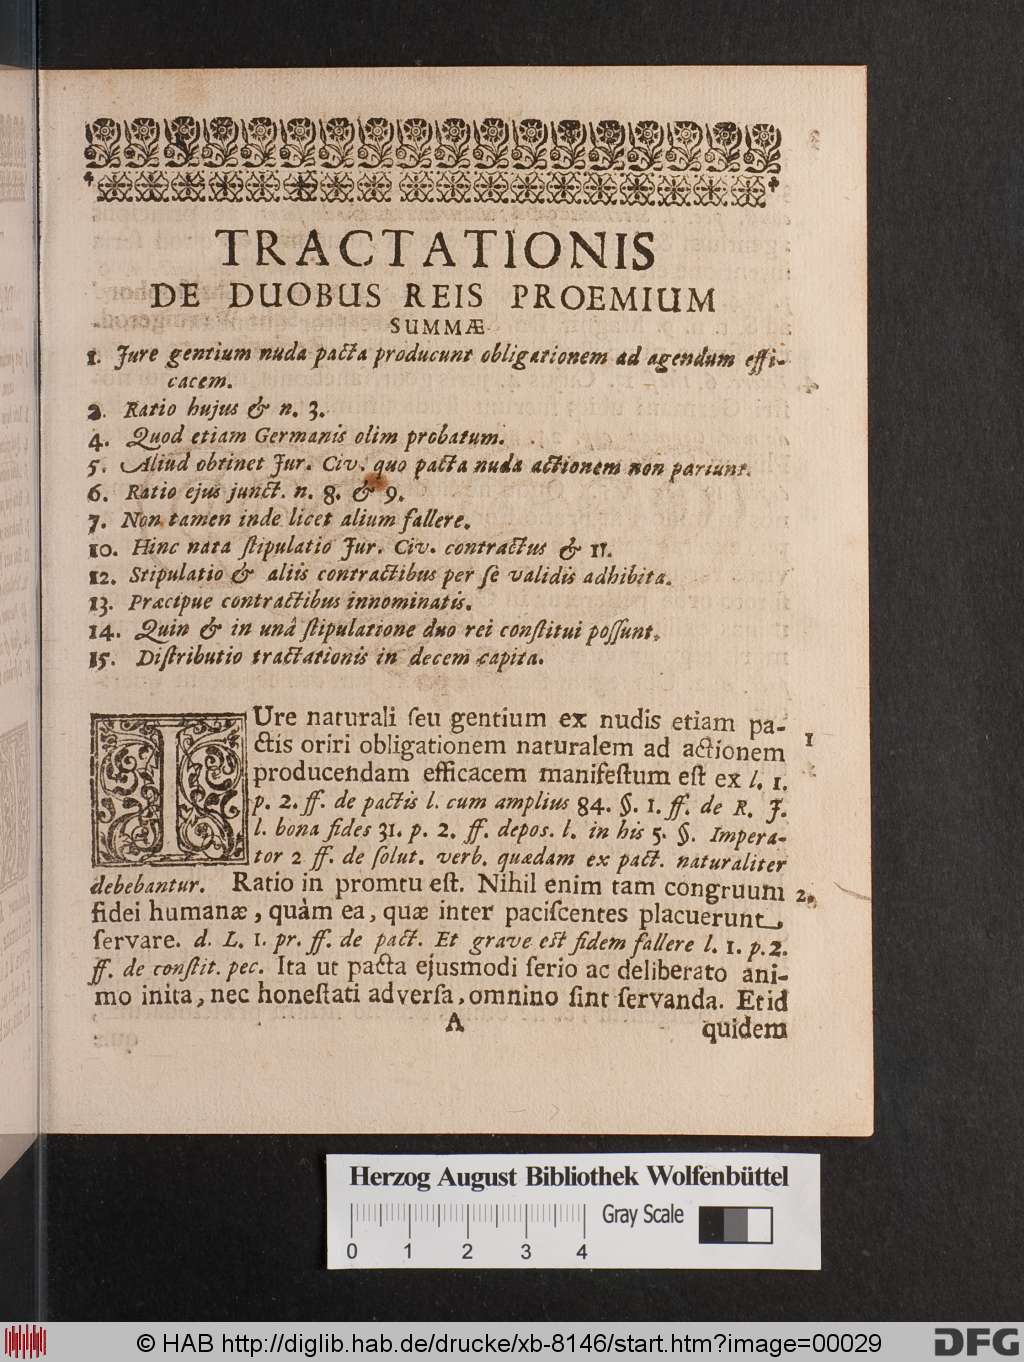 TRACTATIONIS
DE DUOBUS REIS PROEMIUM
SUMMÆ
1. Jure gentium nuda pacta producunt obligationem ad agendum effi-
cacem.
2. Ratio hujus & n. 3.
4. Quod etiam Germanis olim probatum.
5. Aliud obtinet Jur. Civ. quo pacta nuda actionem non pariunt.
6. Ratio ejus junct. n. 8. & 9.
7. Non tamen inde licet alium fallere.
10. Hinc nata ſtipulatio Jur. Civ. contractus & 11.
12. Stipulatio & aliis contractibus per ſe validis adhibita.
13. Præcipue contractibus innominatis.
14. Quin & in unâ ſtipulatione duo rei conſtitui poſſunt.
15. Diſtributio tractationis in decem capita.
IUre naturali ſeu gentium ex nudis etiam pa-
ctis oriri obligationem naturalem ad actionem 1
producendam efficacem manifeſtum eſt ex l. 1.
p. 2. ff. de pactis l. cum amplius 84. §. 1. ff. de R. J.
l. bona fides 31. p. 2. ff. depos. l. in his 5. §. Impera-
tor 2 ff. de ſolut. verb. quædam ex pact. naturaliter
debebantur. Ratio in promtu eſt. Nihil enim tam congruum 2.
fidei humanæ, quàm ea, quæ inter paciſcentes placuerunt,
ſervare. d. L. 1. pr. ff. de pact. Et grave eſt fidem fallere l. 1. p. 2.
ff. de conſtit. pec. Ita ut pacta ejusmodi ſerio ac deliberato ani-
mo inita, nec honeſtati adverſa, omnino ſint ſervanda. Et id
A quidem
Herzog August Bibliothek Wolfenbüttel
Gray Scale
0 1 2 3 4
© HAB http://diglib.hab.de/drucke/xb-8146/start.htm?image=00029
DFG